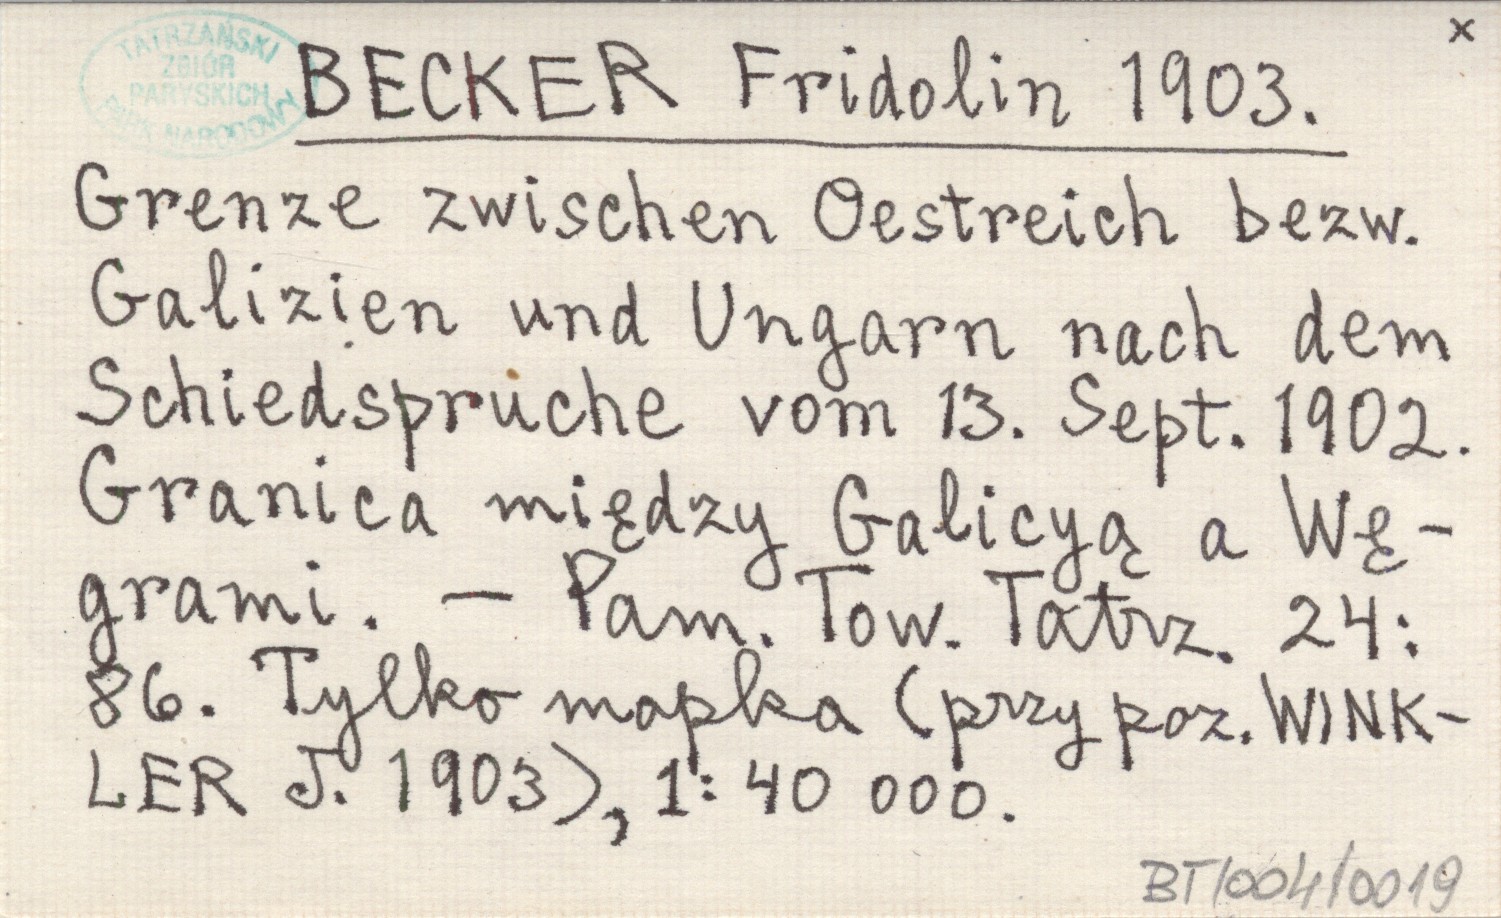 TATRZAŃSKI
ZBIÓR
PARYSKICH
PARK NARODOWY
x
BECKER Fridolin 1903.
Grenze zwischen Oestreich bezw.
Galizien und Ungarn nach dem
Schiedspruche vom 13. Sept. 1902.
Granica między Galicyą a Wę-
grami. — Pam. Tow. Tatrz. 24:
86. Tylko mapka (przy poz. WINK-
LER J. 1903), 1: 40 000.
BT/004/0019